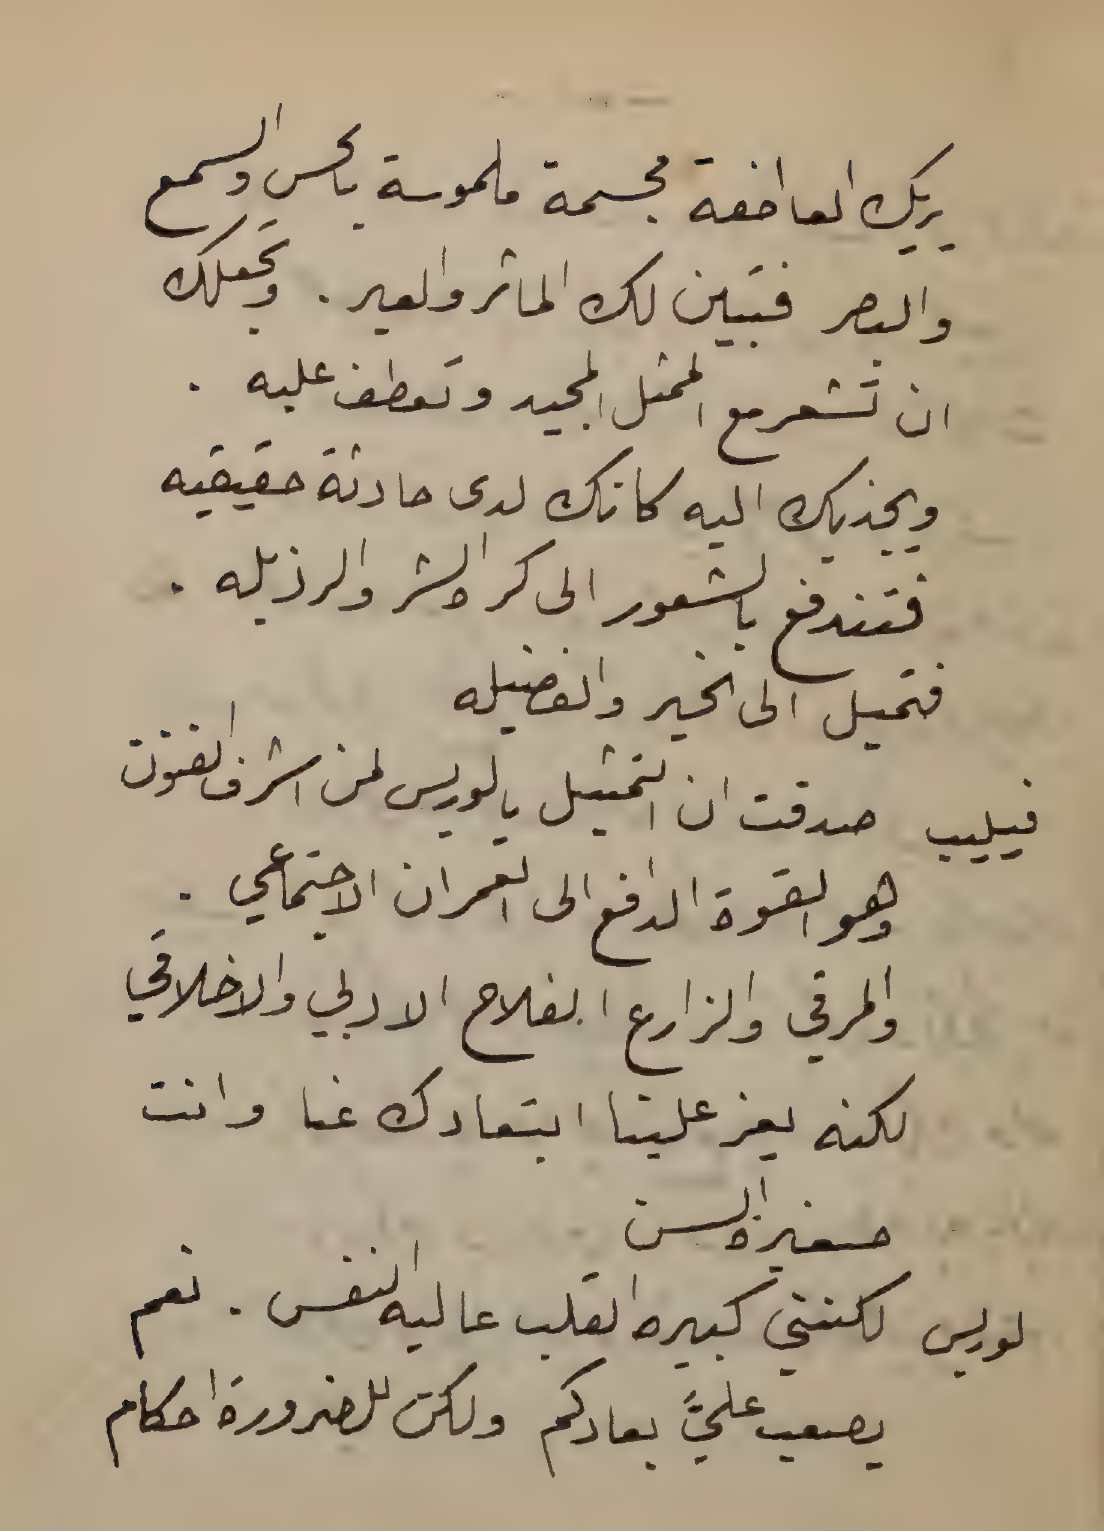 يريك العاطفة مجسمة ملموسة بالحس والسمع
والبصر فتبين لك المآثر والعبر . وتجعلك
ان تشعر مع الممثل المجيد وتعطف عليه .
ويجذبك اليه كانك لدى حادثة حقيقيه
فتندفع بالشعور الى كره الشر والرذيله .
فتميل الى الخير والفضيله
فيليب صدقت ان التمثيل يا لوريس لمن اشرف الفنون
وهو القوة الدافع الى العمران الاجتماعي .
والمرقي والزارع الفلاح الادبي والاخلاقي
لكنه يعز علينا ابتعادك عنا وانت
صغيرة السن
لوريس لكنني كبيره القلب عاليه النفس . نعم
يصعب عليَّ بعادكم ولكن للضرورة احكام